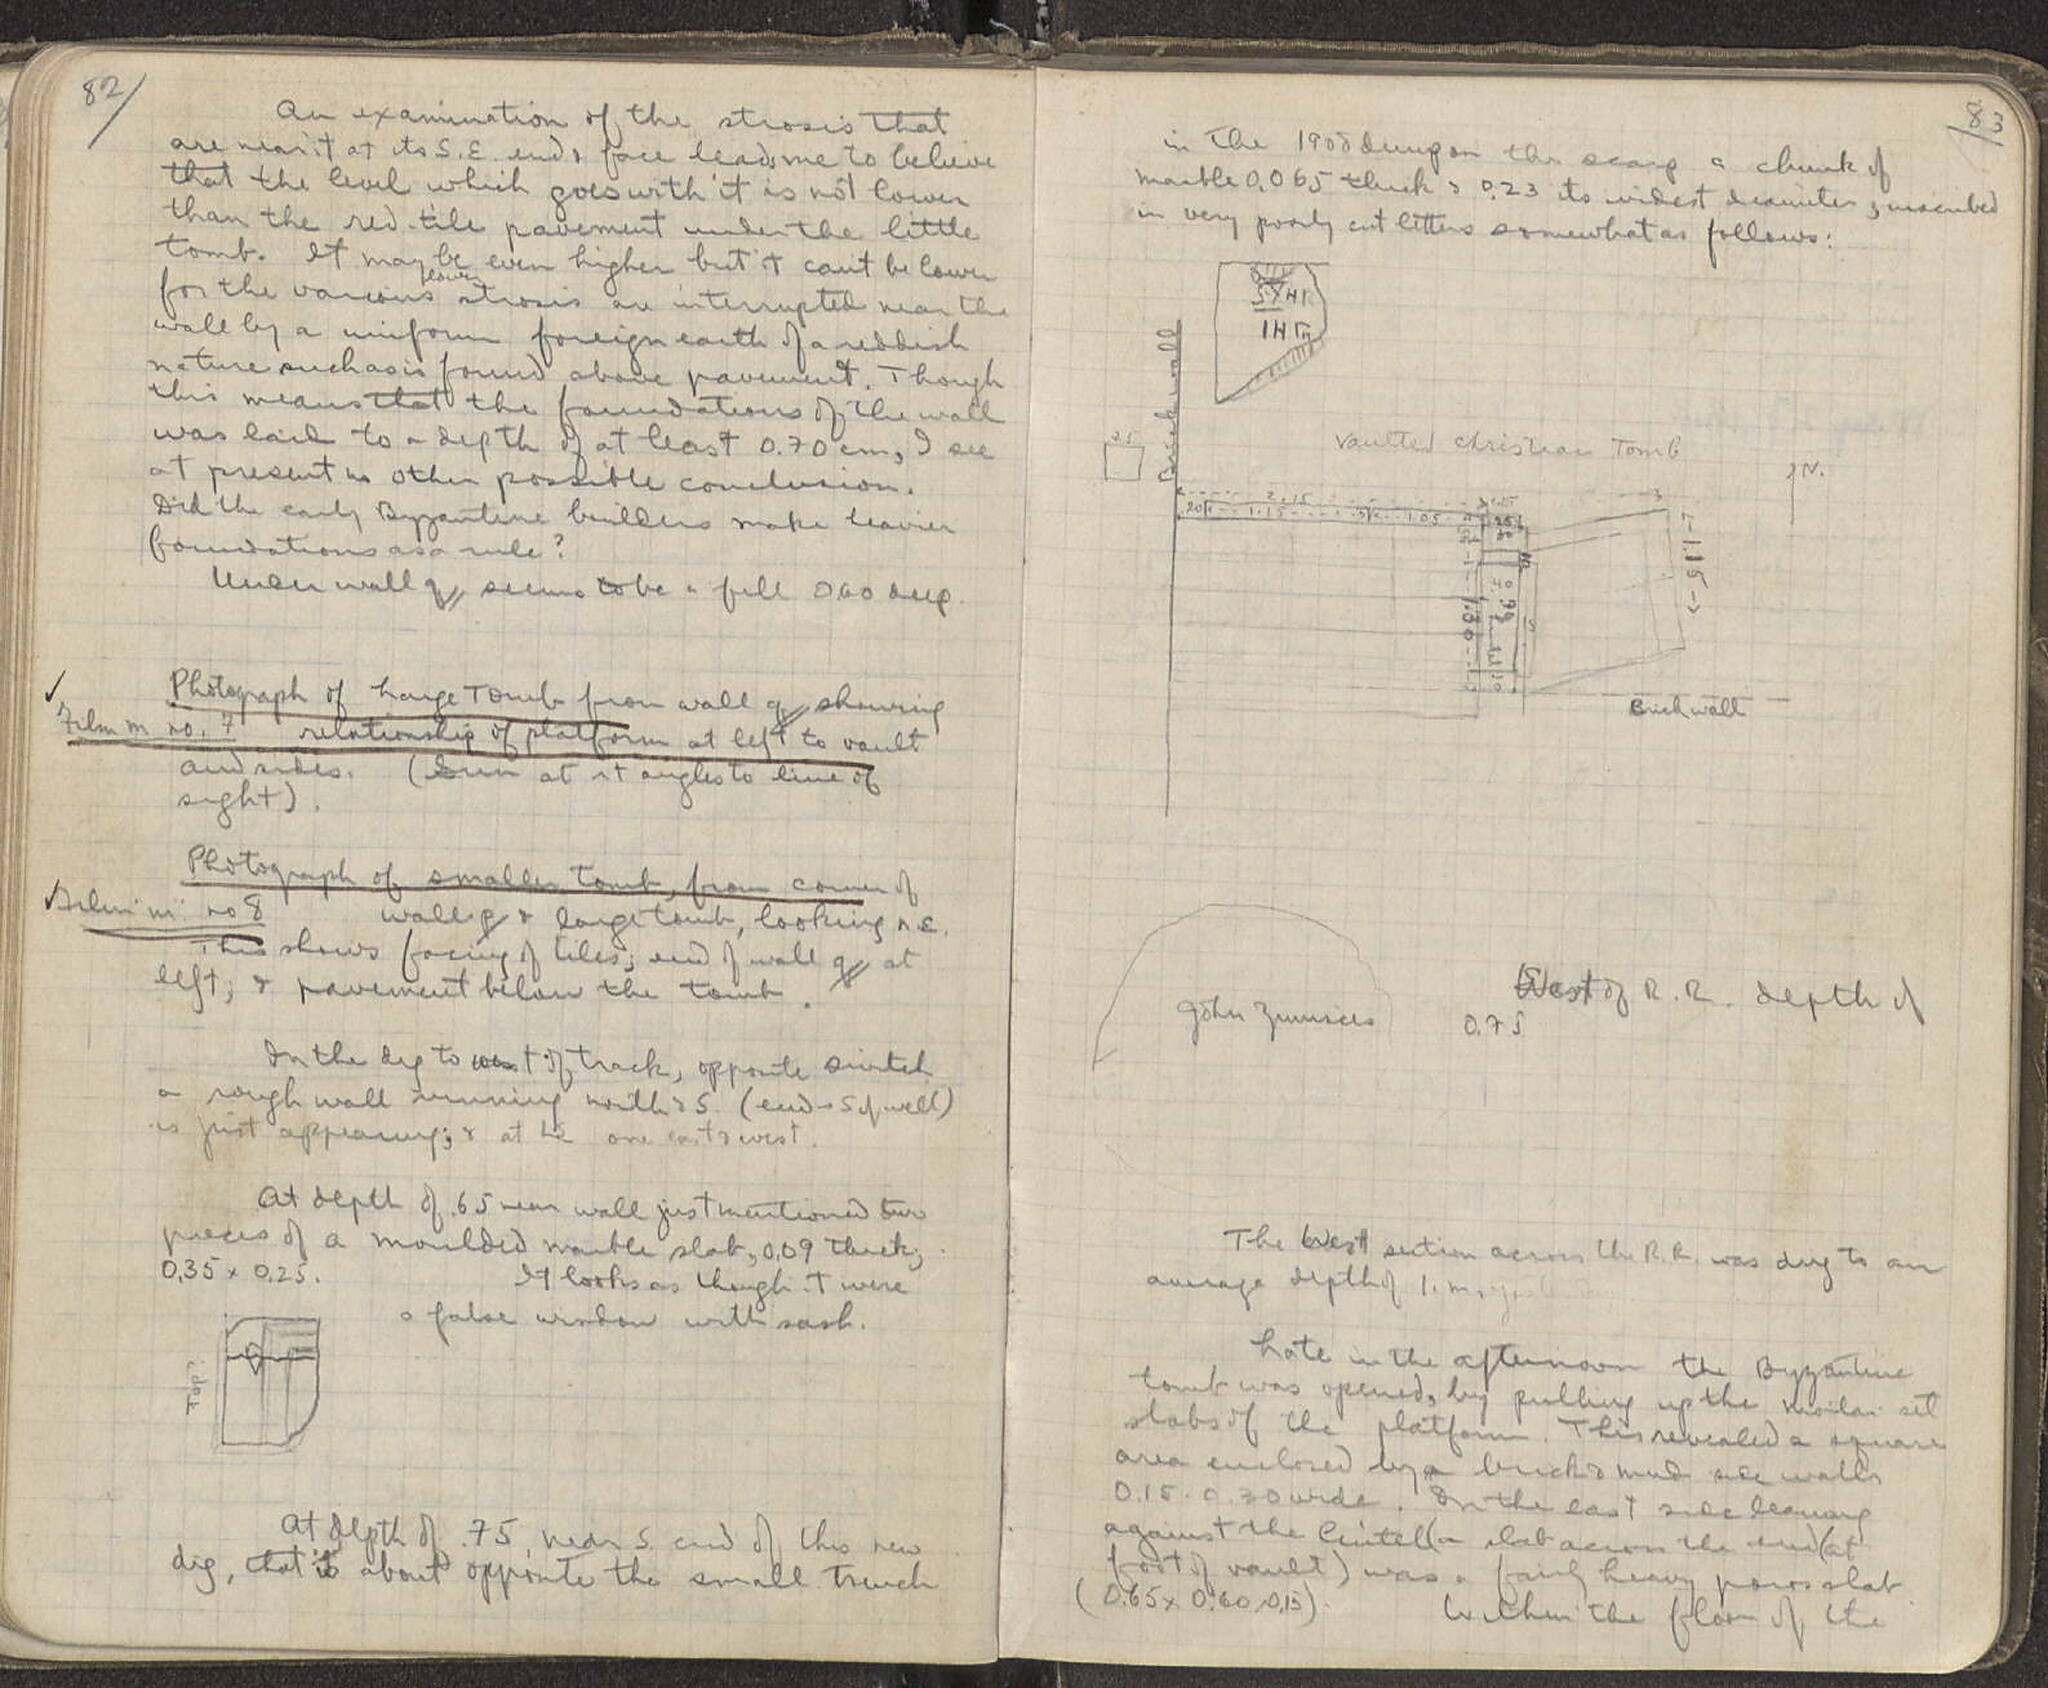 82/
An examination of the strosis that
are near it at its S.E. end & face leads me to believe
that the level which goes with it is not lower
than the red-tile pavement under the little
tomb. It may be even higher but it can't be lower
for the various lower strosis are interrupted near the
wall by a uniform foreign earth of a reddish
nature such as is found above pavement. Though
this means that the foundations of the wall
was laid to a depth of at least 0.70 cm, I see
at present no other possible conclusion.
Did the early Byzantine builders make heavier
foundations as a rule?
Under wall q seems to be a fill 0.60 deep.
Photograph of Large Tomb from wall q showing
Film m no. 7 relationship of platform at left to vault
and sides. (Sun at rt angles to line of
sight).
Photograph of smaller tomb, from corner of
Film "m" no 8 wall q & large tomb, looking N.E.
This shows facing of tiles; end of wall q at
left; & pavement below the tomb.
In the dig to west of track, opposite switch
a rough wall running north & S. (end → S of well)
is just appearing; & at one east & west.
At depth of .65 near wall just mentioned two
pieces of a moulded marble slab, 0.09 thick;
0.35 x 0.25. It looks as though it were
a false window with sash.
Top
At depth of .75, near S. end of this new
dig, that is about opposite the small trench
83
in the 1908 dump on the scarp a chunk of
marble 0.065 thick & 0.23 its widest diameter, inscribed
in very poorly cut letters somewhat as follows:
Brick wall
25
Vaulted Christian Tomb
N.
2.15
20 1.15 1.05
1.15
1.30
15
Brick wall
John Zimisces
West of R.R. depth of
0.75
The West section across the R.R. was dug to an
average depth of 1. m.
Late in the afternoon the Byzantine
tomb was opened, by pulling up the mortar set
slabs of the platform. This revealed a square
area enclosed by a brick & mud side walls
0.15-0.30 wide. In the east side leaning
against the lintel (a slab across the end (at
foot of vault) was a fairly heavy poros slab
(0.65 x 0.60, 0.15). Within the floor of the